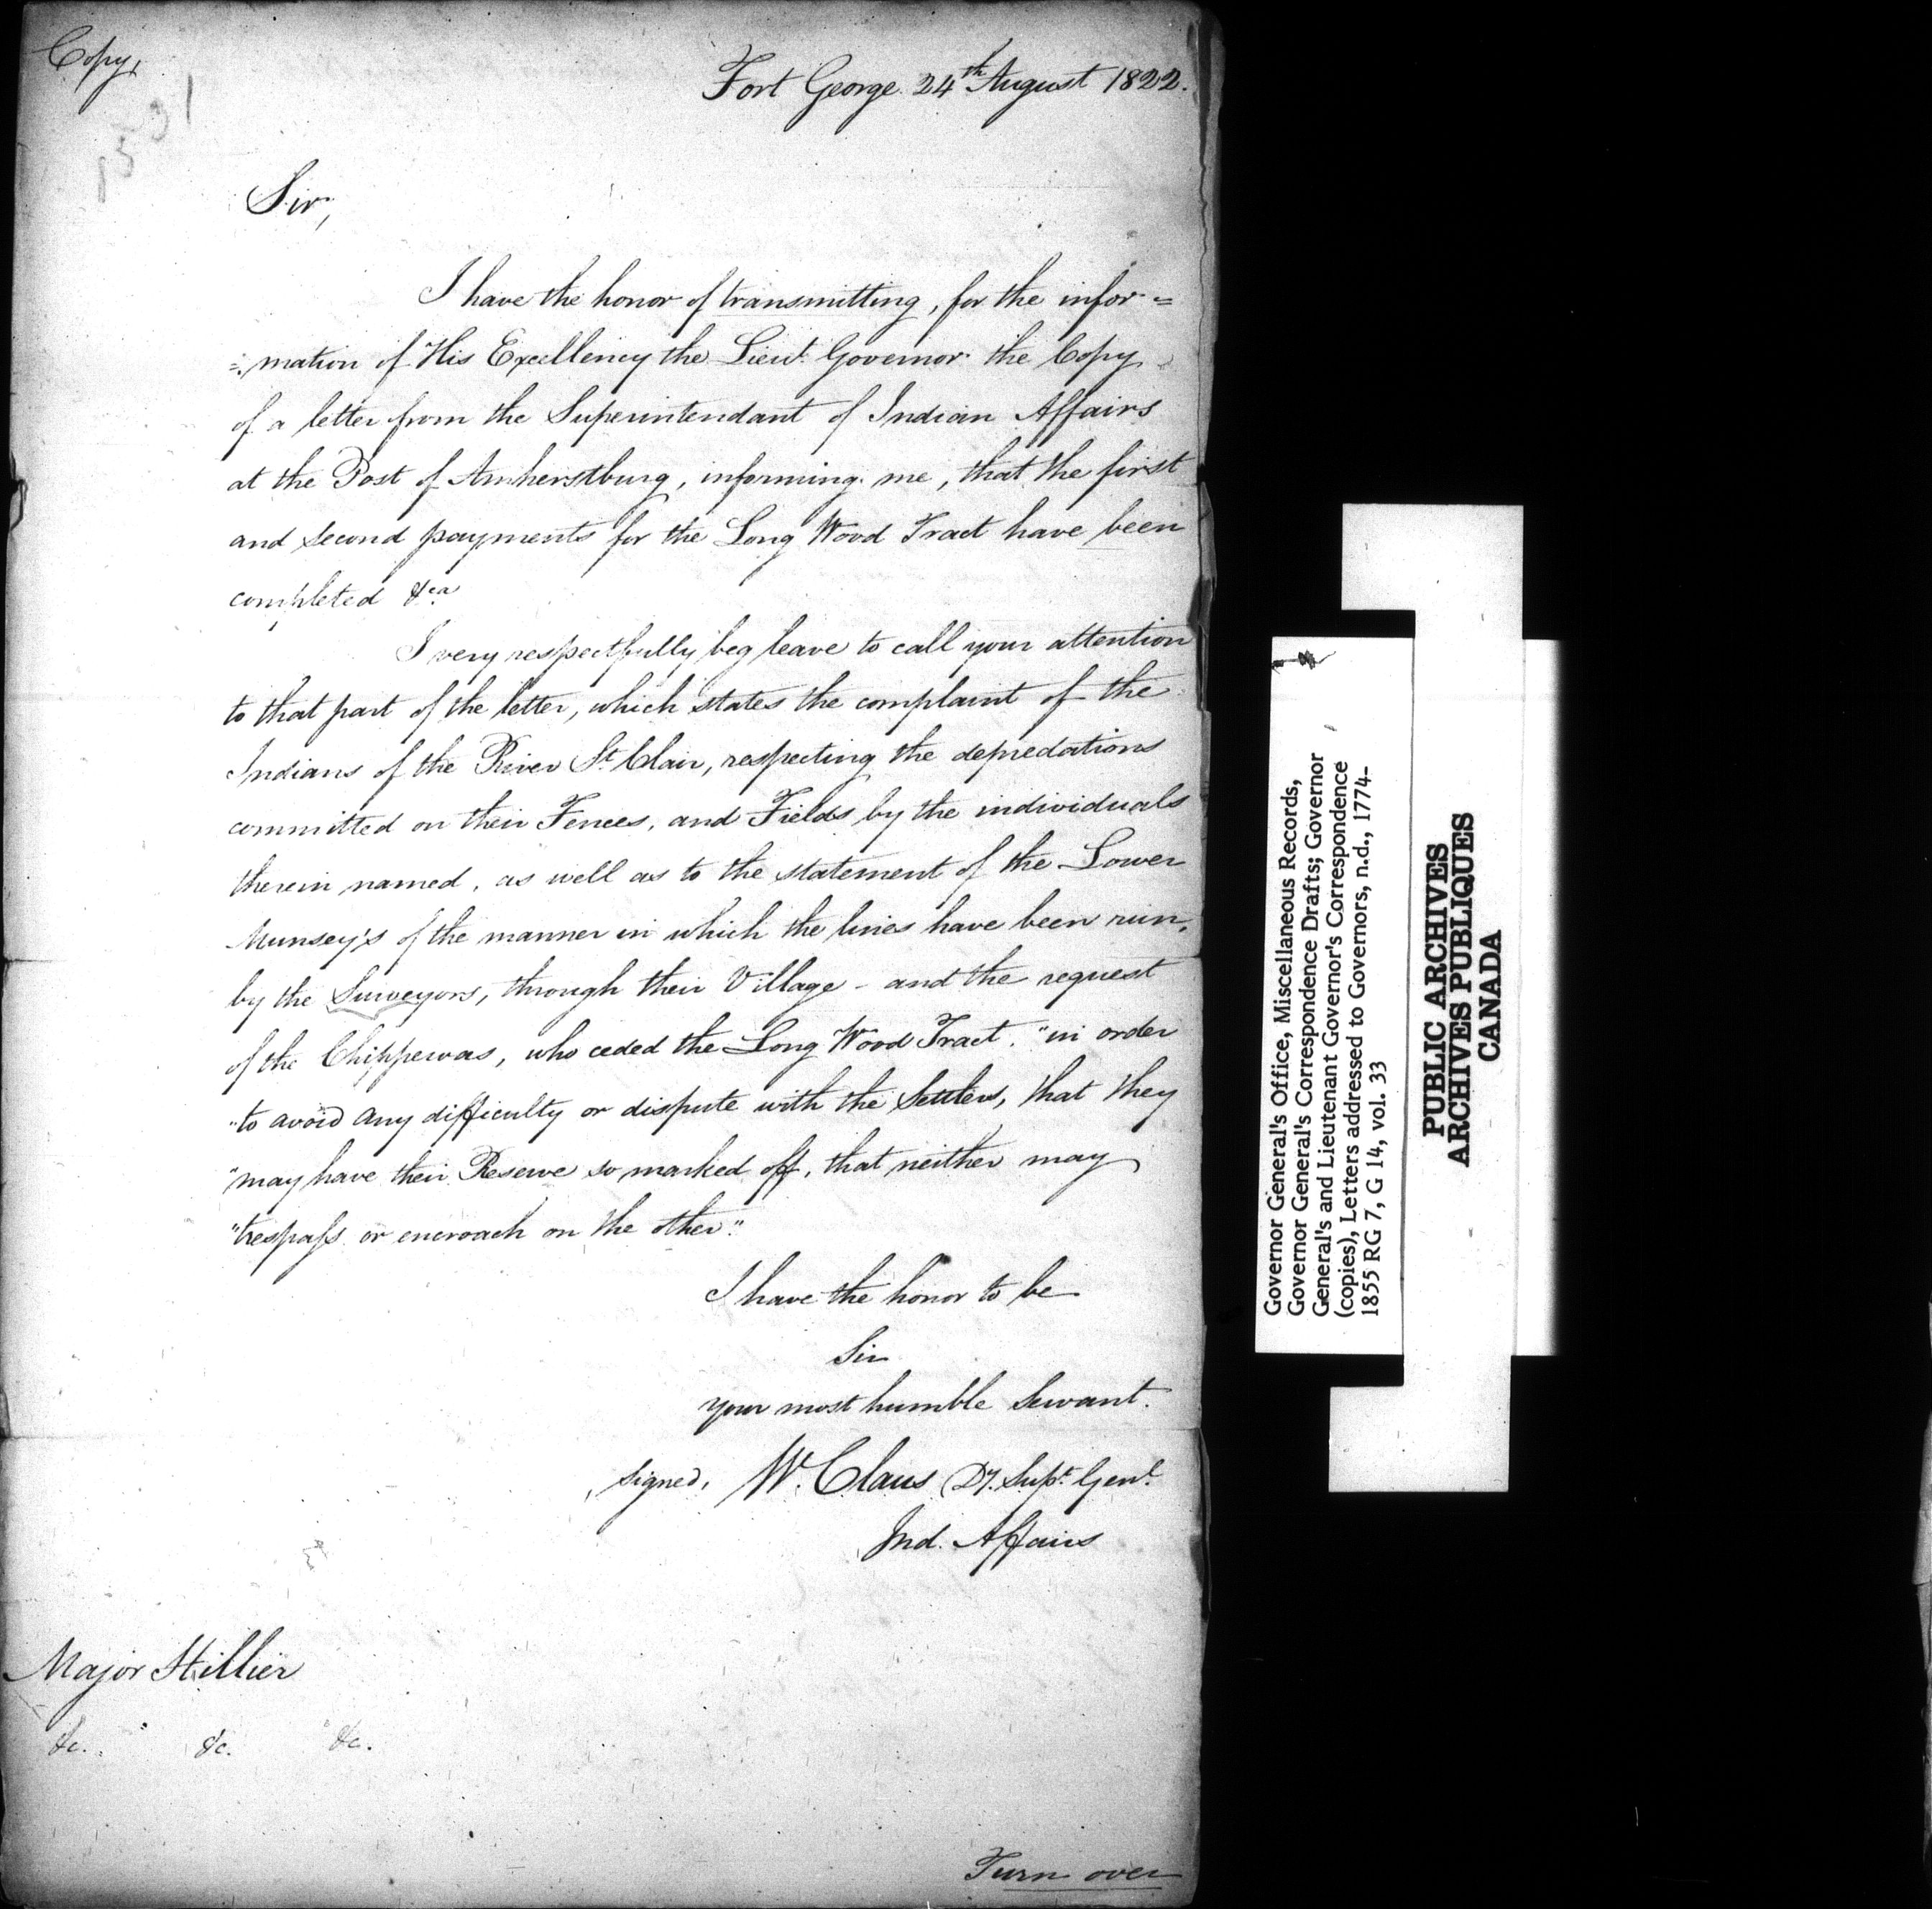 Copy,
Fort George 24th August 1822.
Sir,
I have the honor of transmitting, for the infor=
=mation of His Excellency the Lieut. Governor the Copy
of a letter from the Superintendant of Indian Affairs
at the Post of Amherstburg, informing me, that the first
and second payments for the Long Wood Tract have been
completed &ca
I very respectfully beg leave to call your attention
to that part of the letter, which states the complaint of the
Indians of the River St. Clair, respecting the depredations
committed on their Fences, and Fields by the individuals
therein named, as well as to the statement of the Lower
Munsey's of the manner in which the lines have been run,
by the Surveyors, through their Village - and the request
of the Chippewas, who ceded the Long Wood Tract. "in order
"to avoid any difficulty or dispute with the Settlers, that they
"may have their Reserve so marked off, that neither may
"trespass or encroach on the other."
I have the honor to be
Sir
your most humble Servant.
signed, W. Claus Dy. Supt. Genl.
Ind. Affairs
Major Hillier
&c. &c. &c.
Turn over
Governor General's Office, Miscellaneous Records,
Governor General's Correspondence Drafts; Governor
General's and Lieutenant Governor's Correspondence
(copies), Letters addressed to Governors, n.d., 1774-
1855 RG 7, G 14, vol. 33
PUBLIC ARCHIVES
ARCHIVES PUBLIQUES
CANADA